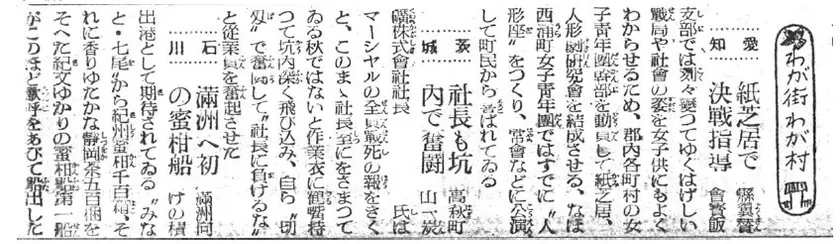 わが街わが村
愛知
紙芝居で決戦指導
縣翼賛會寳飯
支部では刻々變つてゆくはげしい
戰局や社會の姿を女子供にもよく
わからせるため、郡内各町村の女
子青年團幹部を動員して紙芝居、
人形劇研究會を結成させる、なほ
西浦町女子青年團ではすでに“人
形座”をつくり、常會などに公演
して町民から喜ばれてゐる
茨城
社長も坑内で奮闘
高萩町
山一炭
礦株式會社社長
氏は
マーシヤルの全員戰死の報をきく
と、このまゝ社長室にをさまつて
ゐる秋ではないと作業衣に
つて坑内深く飛び込み、自ら“切
羽”で奮闘して“社長に負けるな”
と從業員を奮起させた
石川
滿洲へ初の蜜柑船
滿洲向けの積
出港として期待されてゐる“みな
と・七尾”から紀州蜜柑千百箱、そ
れに香りゆたかな靜岡茶五百梱を
そへた紀文ゆかりの蜜柑船第一船
がこのほど歡呼をあびて船出した